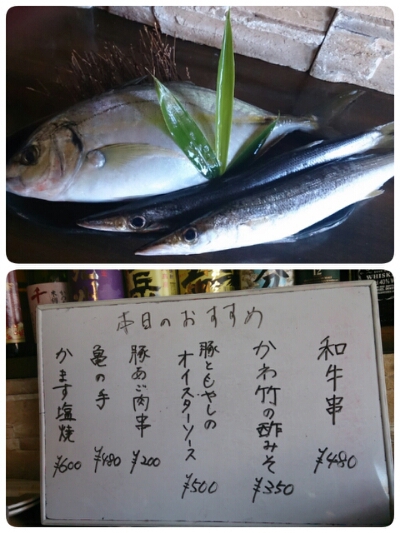 本日のおすすめ
和牛串
¥480
かわ竹の酢みそ
¥350
豚ともやしの
オイスターソース
¥500
豚あご肉串
¥200
亀の手
¥480
かます塩焼
¥600
WHISKY